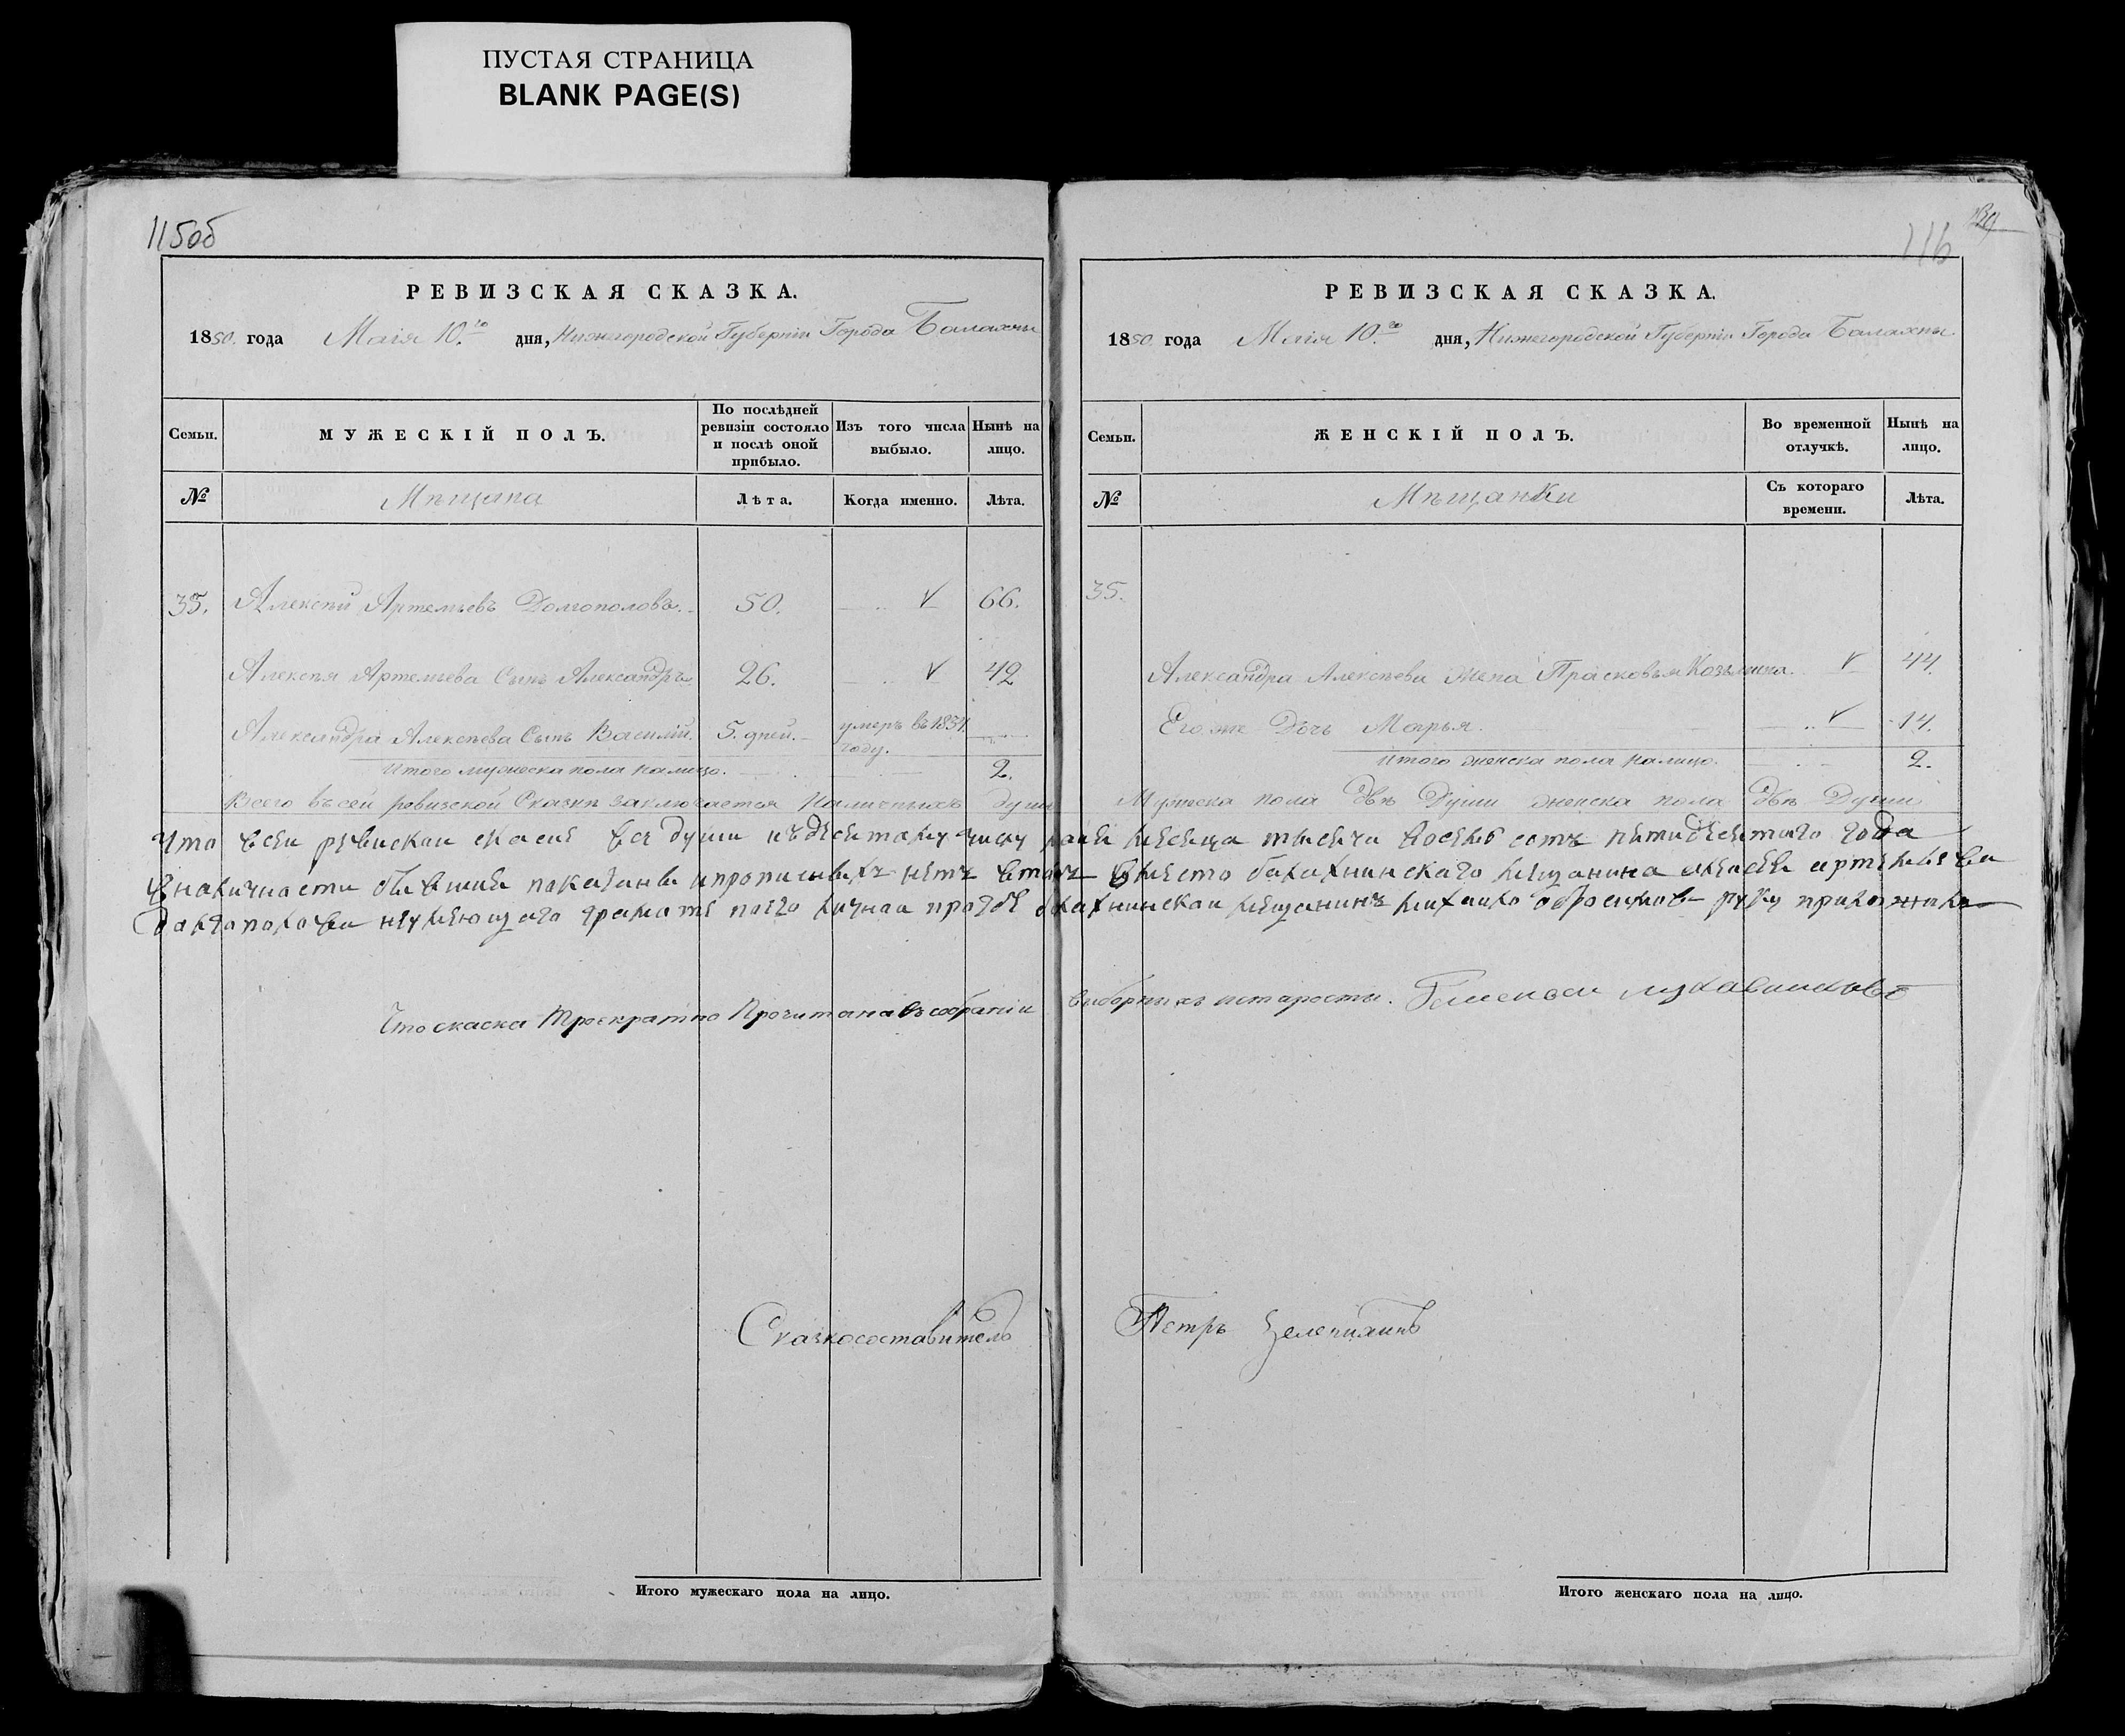 ПУСТАЯ СТРАНИЦА
BLANK PAGE(S)
115об
РЕВИЗСКАЯ СКАЗКА.
1850. года Маія 10.го дня, Нижегородской Губерніи Города Балахны
Семьи.
МУЖЕСКІЙ ПОЛЪ.
По послѣдней ревизіи состояло и послѣ оной прибыло.
Изъ того числа выбыло.
Нынѣ на лицо.
№
Мѣщана
Лѣта.
Когда именно.
Лѣта.
35. Алексѣй Артемьевъ Долгополовъ. 50. 66.
Алексѣя Артемьева Сынъ Александръ 26. 42
Александра Алексѣева Сынъ Василій. 5. дней. умеръ въ 1834 году.
Итого мужеска пола налицо. 2.
116
РЕВИЗСКАЯ СКАЗКА.
1850. года Маія 10.го дня, Нижегородской Губерніи Города Балахны.
Семьи.
ЖЕНСКІЙ ПОЛЪ.
Во временной отлучкѣ.
Нынѣ на лицо.
№
Мѣщанки
Съ котораго времени.
Лѣта.
35.
Александра Алексѣева Жена Прасковья Козьмина. 44.
Его же Дочь Марья. 14.
Итого женска пола налицо. 2.
Всего въ сей ревизской Сказкѣ заключается Наличныхъ душъ Мужеска пола двѣ Души женска пола двѣ Души
Что всеи ревискаи скаске все души къдесятаму числу маия месеца тысеча восемь сотъ пятидесятаго года
Вналичнасти бывшия показаны ипрописныхъ нетъ втомъ Вместо балахнинскаго мещанина алексея артемева
далгополова неумеющаго грамате поего личнаи прозбе балахнинскаи мещанинъ михаило руку приложилъ
Что скаска Троекратно Прочитана въ собраніи выборныхъ истаросты.
Сказкосоставитель Петръ Зелепихинъ
Итого мужескаго пола на лицо.
Итого женскаго пола на лицо.